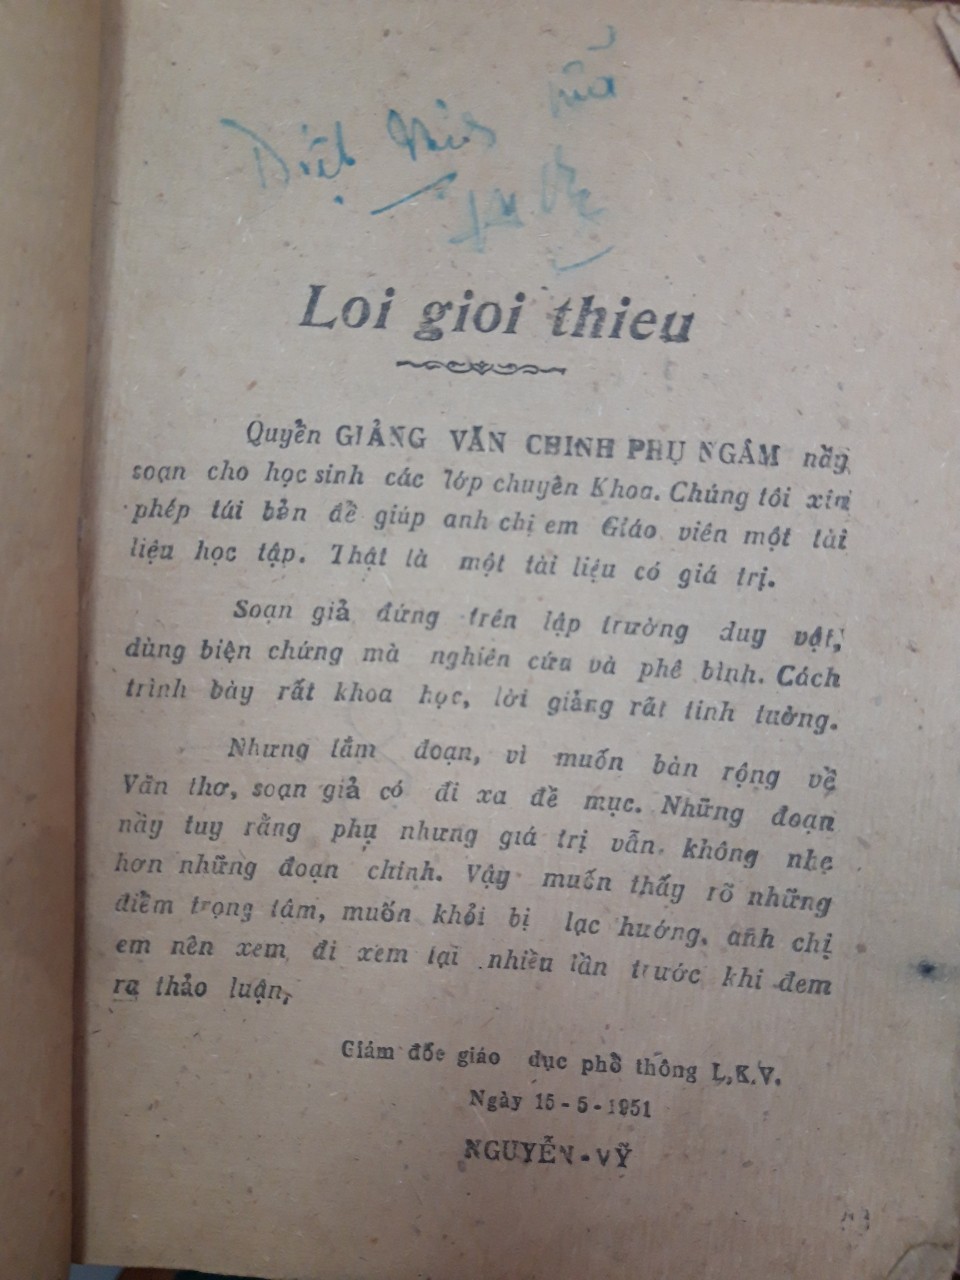 Loi gioi thieu
Quyền GIẢNG VĂN CHINH PHỤ NGÂM nầy
soạn cho học sinh các lớp chuyên Khoa. Chúng tôi xin
phép tái bản đề giúp anh chị em Giáo viên một tài
liệu học tập. Thật là một tài liệu có giá trị.
Soạn giả đứng trên lập trường duy vật,
dùng biện chứng mà nghiên cứu và phê bình. Cách
trình bày rất khoa học, lời giảng rất tinh tường.
Nhưng lắm đoạn, vì muốn bàn rộng về
Văn thơ, soạn giả có đi xa đề mục. Những đoạn
nầy tuy rằng phụ nhưng giá trị vẫn không nhẹ
hơn những đoạn chinh. Vậy muốn thấy rõ những
điềm trọng tâm, muốn khỏi bị lạc hướng, anh chị
em nên xem đi xem lại nhiều lần trước khi đem
ra thảo luận,
Giám đốc giáo dục phổ thông L.K.V.
Ngày 15-5-1951
NGUYỄN-VỸ